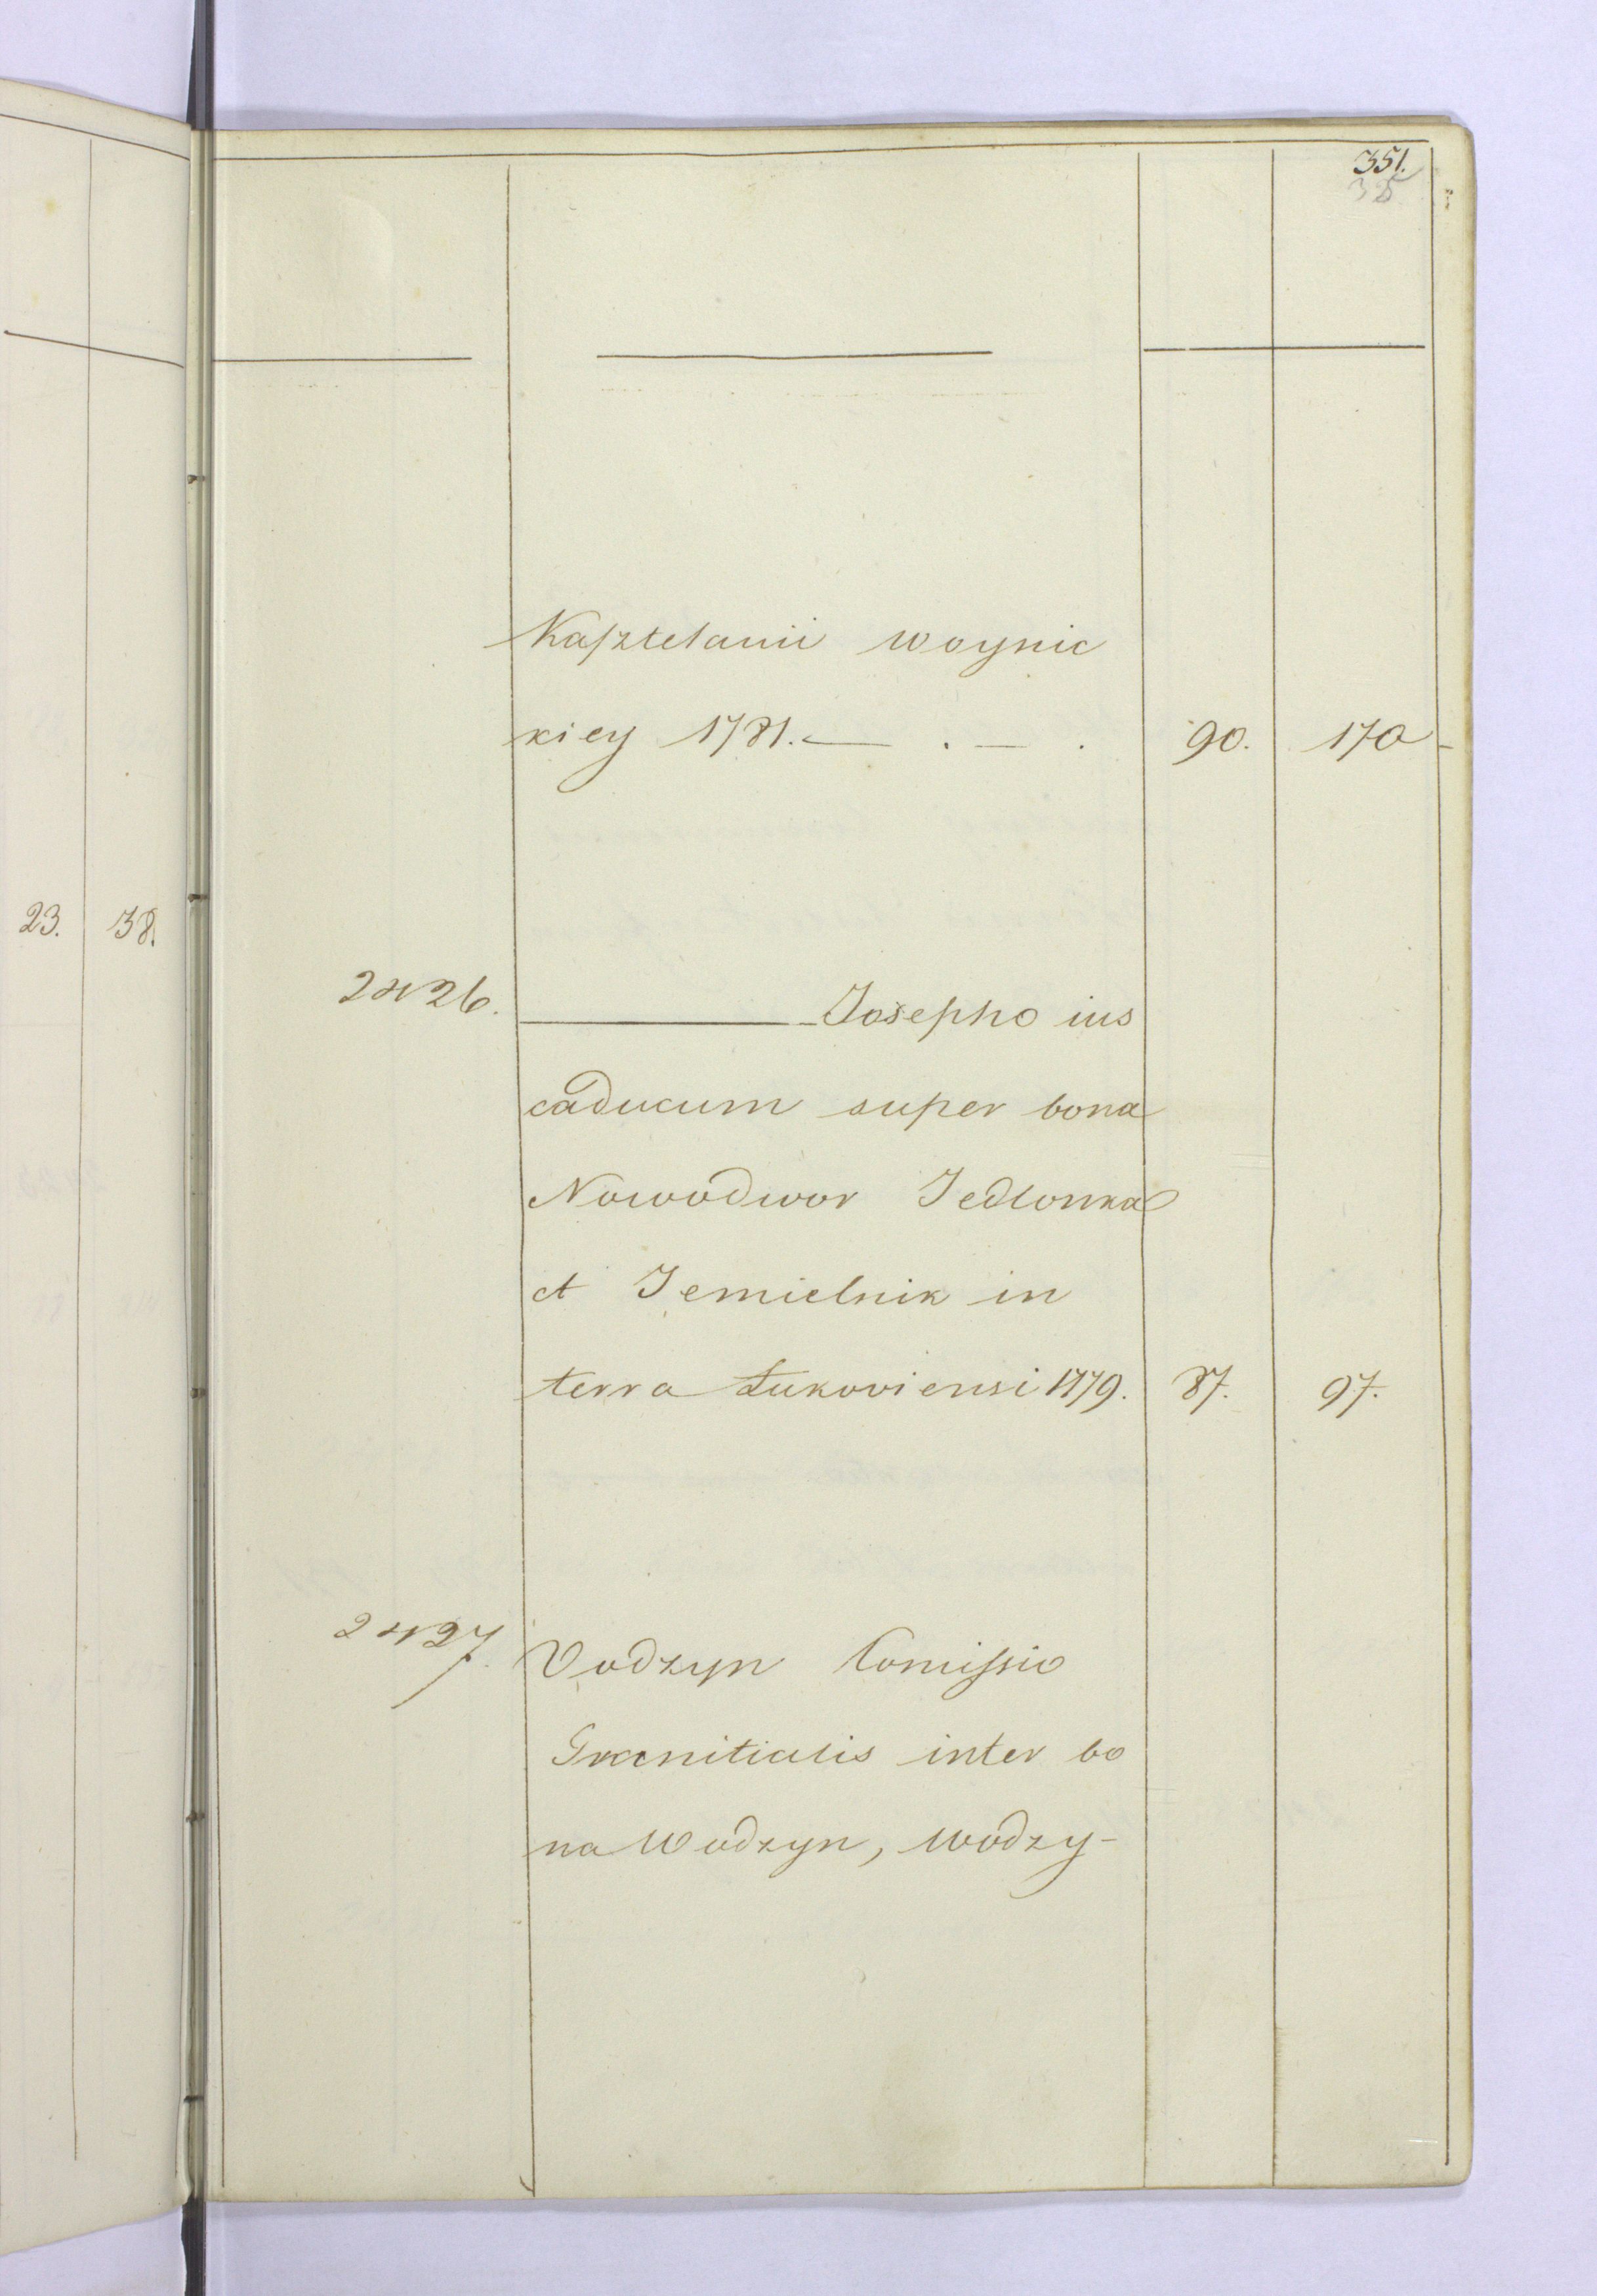 351.
38
Kasztelanii Woynic
kiey 1781. — . — . 90. 170
23. 38.
2426. ——— Josepho ius
caducum super bona
Nowodwor Jedlonka
et Jemielnik in
terra Łukoviensi 1779. 87. 97.
2427. Vodzyn Comissio
Granitialis inter bo
na Wodzyn, Wodzy-